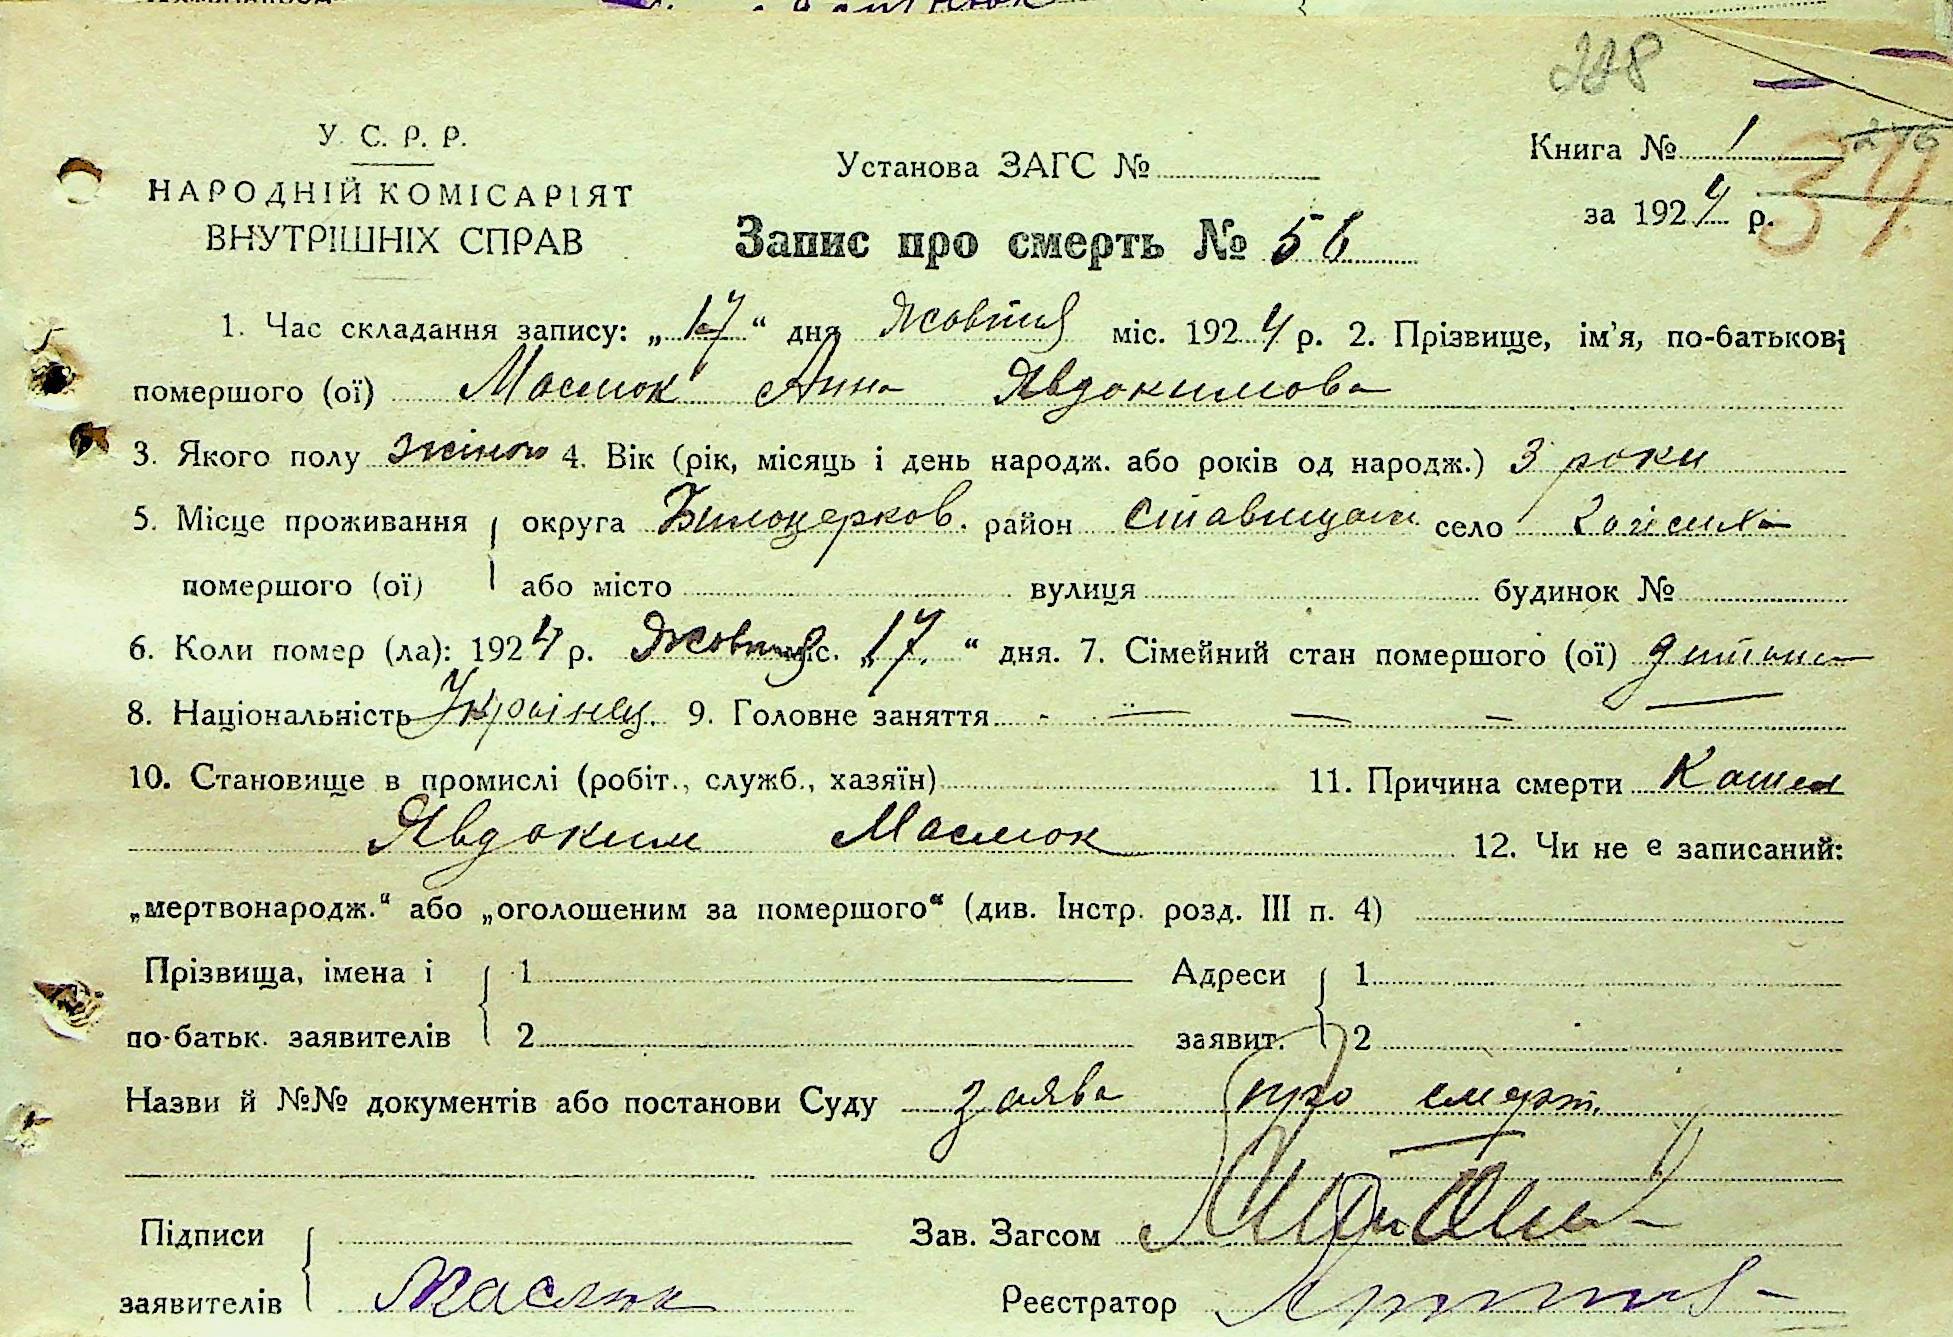 228
У. С. Р. Р.
НАРОДНІЙ КОМІСАРІЯТ
ВНУТРІШНІХ СПРАВ
Установа ЗАГС №
Книга № 1
246
за 1924 р.
34
Запис про смерть № 56
1. Час складання запису: „17“ дня Жовтня міс. 1924 р. 2. Прізвище, ім'я, по-батькові
помершого (ої) Маслюк Анна Явдокимова
3. Якого полу жіноч 4. Вік (рік, місяць і день народж. або років од народж.) 3 роки
5. Місце проживання округа Билоцерков. район Ставищан. село
помершого (ої) або місто вулиця будинок №
6. Коли помер (ла): 1924 р. Жовтня міс. „17.“ дня. 7. Сімейний стан помершого (ої) дитина
8. Національність Украінец. 9. Головне заняття — — —
10. Становище в промислі (робіт., служб., хазяїн) 11. Причина смерти Кашел
Явдоким Маслюк 12. Чи не є записаний:
„мертвонародж.“ або „оголошеним за помершого“ (див. Інстр. розд. III п. 4)
Прізвища, імена і 1 Адреси 1
по-батьк. заявителів 2 заявит. 2
Назви й №№ документів або постанови Суду заява про смерт.
Підписи Зав. Загсом
заявителів Маслюк Реєстратор